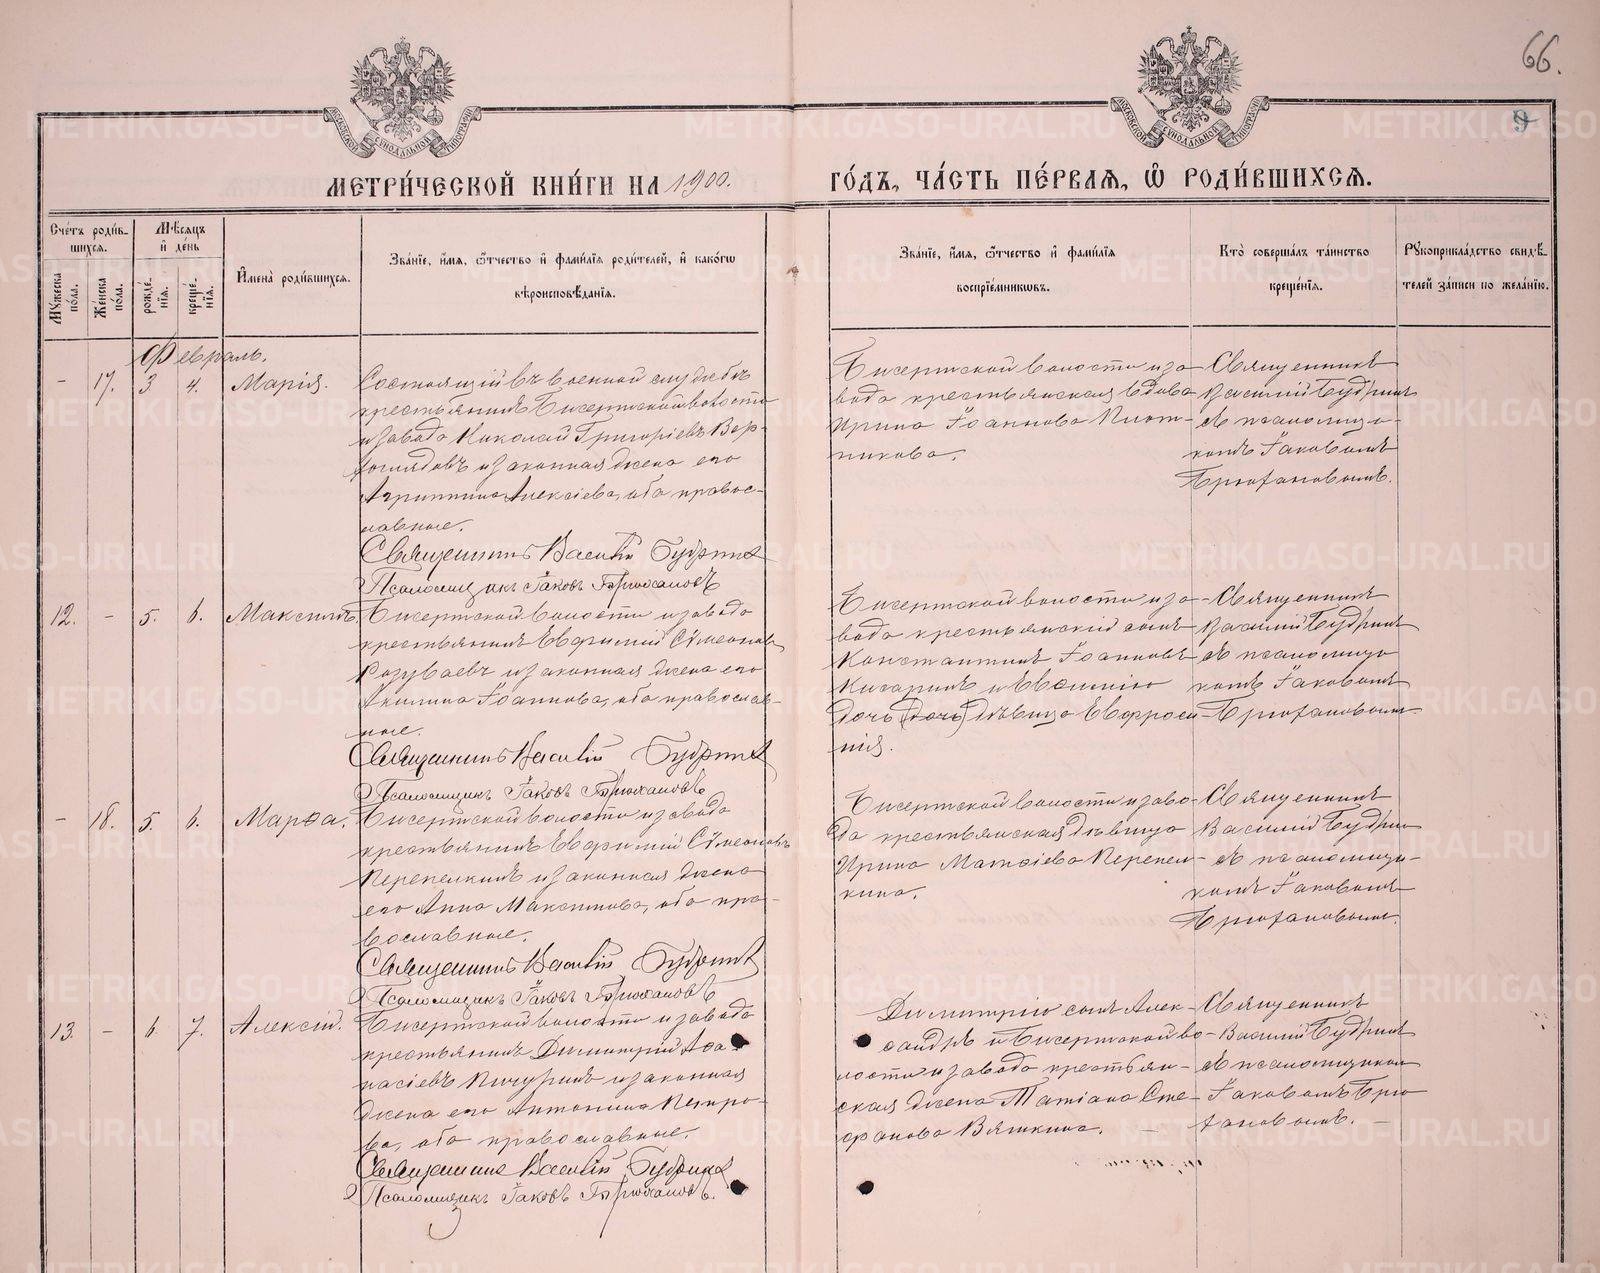 66.
9
МОСКОВСКОЙ СУНОДАЛЬНОЙ ТИПОГРАФІИ
МОСКОВСКОЙ СУНОДАЛЬНОЙ ТИПОГРАФІИ
МЕТРИ́ЧЕСКОЙ КНИ́ГИ НА 1900. ГО́ДЪ, ЧА́СТЬ ПЕ́РВАЯ, Ѡ҆ РОДИ́ВШИХСЯ.
Сче́тъ роди́в-
шихся.
Мꙋжеска по́ла.
Же́нска по́ла.
Мѣ́сяцъ
и҆ де́нь
рожде́нїя.
креще́нїя.
И҆мена̀ роди́вшихся.
Зва́нїе, и҆́мя, ѻ҆́тчество и҆ фами́лїя роди́телей, и҆ како́гѡ
вѣроисповѣ́данїя.
Зва́нїе, и҆́мя, ѻ҆́тчество и҆ фами́лїя
воспрїе́мникѡвъ.
Кто̀ соверша́лъ та́инство
креще́нїя.
Рꙋкоприкла́дство свидѣ́-
телей за́писи по жела́нїю.
Февраль.
– 17. 3 4. Марія.
Состоящій въ военной службѣ
крестьянинъ Бисертской волости
и завода Николай Григоріевъ Вер-
и законная жена его
Агриппина Алексіева, оба правос-
лавные.
Священникъ Василій Будринъ
Псаломщикъ Іаковъ Брюхановъ
Бисертской волости и за-
вода крестьянская вдова
Ирина Іоаннова Плот-
никова.
Священникъ
Василій Будринъ
съ псаломщи-
комъ Іаковомъ
Брюхановымъ.
12. – 5. 6. Максимъ.
Бисертской волости и завода
крестьянинъ Евфимій Сѵмеоновъ
Розуваевъ и законная жена его
Акилина Іоаннова, оба православ-
ные.
Священникъ Василій Будринъ
Псаломщикъ Іаковъ Брюхановъ
Бисертской волости и за-
вода крестьянскій сынъ
Константинъ Іоанновъ
и
дочь (дочь) дѣвица Евфроси-
нія.
Священникъ
Василій Будринъ
съ псаломщи-
комъ Іаковомъ
Брюхановымъ.
– 18. 5. 6. Марѳа.
Бисертской волости и завода
крестьянинъ Евфимій Сѵмеоновъ
Перепелкинъ и законная жена
его Анна Максимова, оба пра-
вославные.
Священникъ Василій Будринъ
Псаломщикъ Іаковъ Брюхановъ
Бисертской волости и заво-
да крестьянская дѣвица
Ирина Матѳіева Перепел-
кина.
Священникъ
Василій Будринъ
съ псаломщи-
комъ Іаковомъ
Брюхановымъ.
13. – 6. 7. Алексій.
Бисертской волости и завода
крестьянинъ Димитрій Аѳа-
насіевъ Пичугинъ и законная
жена его Антонина Петро-
ва, оба православные.
Священникъ Василій Будринъ
Псаломщикъ Іаковъ Брюхановъ.
Димитрію сынъ Алек-
сандръ и Бисертской во-
лости и завода крестьян-
ская жена Татіана Сте-
фанова Вяткина. –
Священникъ
Василій Будринъ
съ псаломщикомъ
Іаковомъ Брю-
хановымъ. –
METRIKI.GASO-URAL.RU